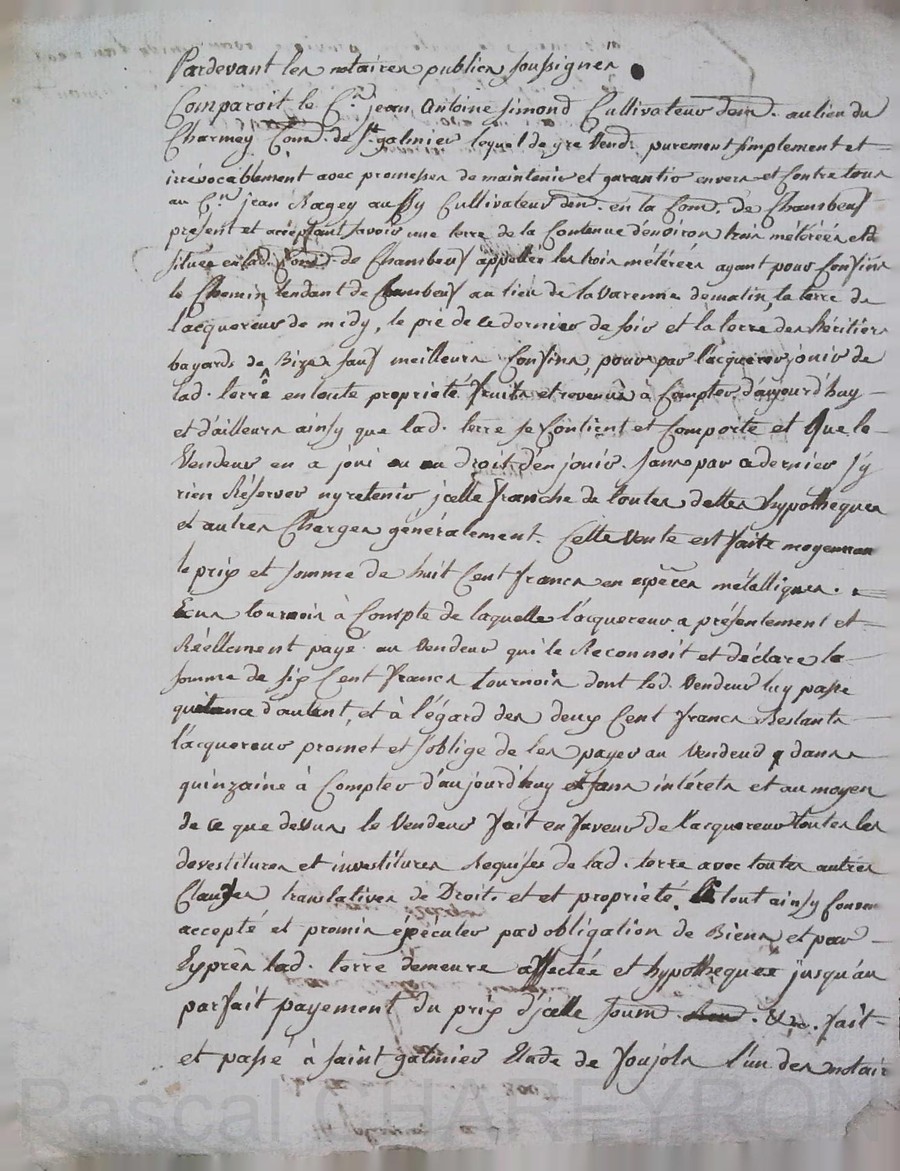 Pardevant les notaires publics soussignes
Comparoit le C.en jean Antoine simond Cultivateur dem.t au lieu du
Charmey Com.e de St galmier lequel de gre Vend purement simplement et
irrévocablement avec promesses de maintenir et garantir envers et Contre tous
au C.en jean Ragey aussy Cultivateur dem.t en la Com.e de Chambeuf
présent et acceptant savoir une terre de la Contenue d'environ trois métérées
située en lad. Com.e de Chambeuf appellée les trois métérées ayant pour Confins
le Chemin tendant de Chambeuf au lieu de la Varenne de matin, la terre de
l'acquereur de midy, le pré de ce dernier de soir et la terre des héritiers
bayards de Bize, sauf meilleurs Confins, pour par l'acquereur jouir de
lad. terre en toute propriété fruits et revenus à Compter d'aujourd'huy
et d'ailleurs ainsy que lad. terre se Contient et Comporte et Que le
Vendeur en a joui ou eu droit d'en jouir. sans par ce dernier s'y
rien Réserver ny retenir jcelle franche de toutes dettes hypotheques
et autres Charges généralement. Cette Vente est faite moyennan
le prix et somme de huit Cent francs en espèces métalliques.
Ecus tournois à Compte de laquelle l'acquereur a présentement et
Réellement payé au Vendeur qui le Reconnoit et déclare la
somme de six Cent francs tournois dont led. Vendeur luy passe
quitance d'autant, et à l'égard des deux Cent francs Restants
l'acquereur promet et s'oblige de les payer au Vendeur dans
quinzaine à Compter d'aujourd'huy et sans intérets et au moyen
de ce que dessus, le Vendeur fait en faveur de l'acquereur toutes les
devestitures et investitures Requises de lad. terre avec toutes autres
Clauses translatives de Droits et et propriété. Le tout ainsy Conven
accepté et promis exécuter par obligation de Biens et par
Exprès lad. terre demeure affectée et hypothequée jusqu'au
parfait payement du prix d'jcelle soum. &.a. fait
et passé à saint galmier Etude de foujols l'un des notair
Pascal CHAREYRON